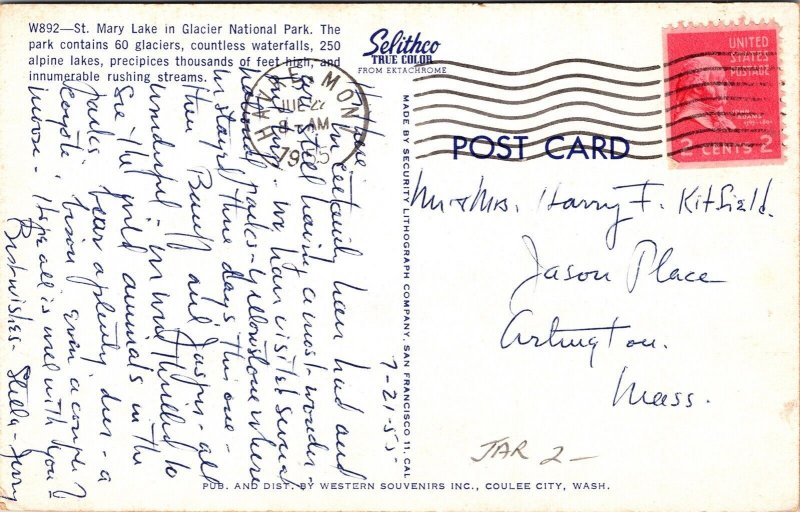 W892—St. Mary Lake in Glacier National Park. The
park contains 60 glaciers, countless waterfalls, 250
alpine lakes, precipices thousands of feet high, and
innumerable rushing streams.
Selithco
TRUE COLOR
FROM EKTACHROME
HAVRE, MONT
JUL 22
8 AM
1955
UNITED
STATES
POSTAGE
JOHN
ADAMS
2 CENTS 2
POST CARD
MADE BY SECURITY LITHOGRAPH COMPANY, SAN FRANCISCO 11, CAL.
Mr & Mrs. Harry F. Kitfield.
Jason Place
Arlington.
Mass.
7-21-55
We certainly have had and
are still having a most wonder-
ful trip - we have visited several
national parks - Yellowstone where
we stayed three days this one -
then Banff and Jasper - all
wonderful - we were thrilled to
see the wild animals in the
parks bears aplenty, deer - a
coyote, bison even a couple of
moose - Hope all is well with you
Best wishes - Stella - Jerry
JAR 2-
PUB. AND DIST. BY WESTERN SOUVENIRS INC., COULEE CITY, WASH.